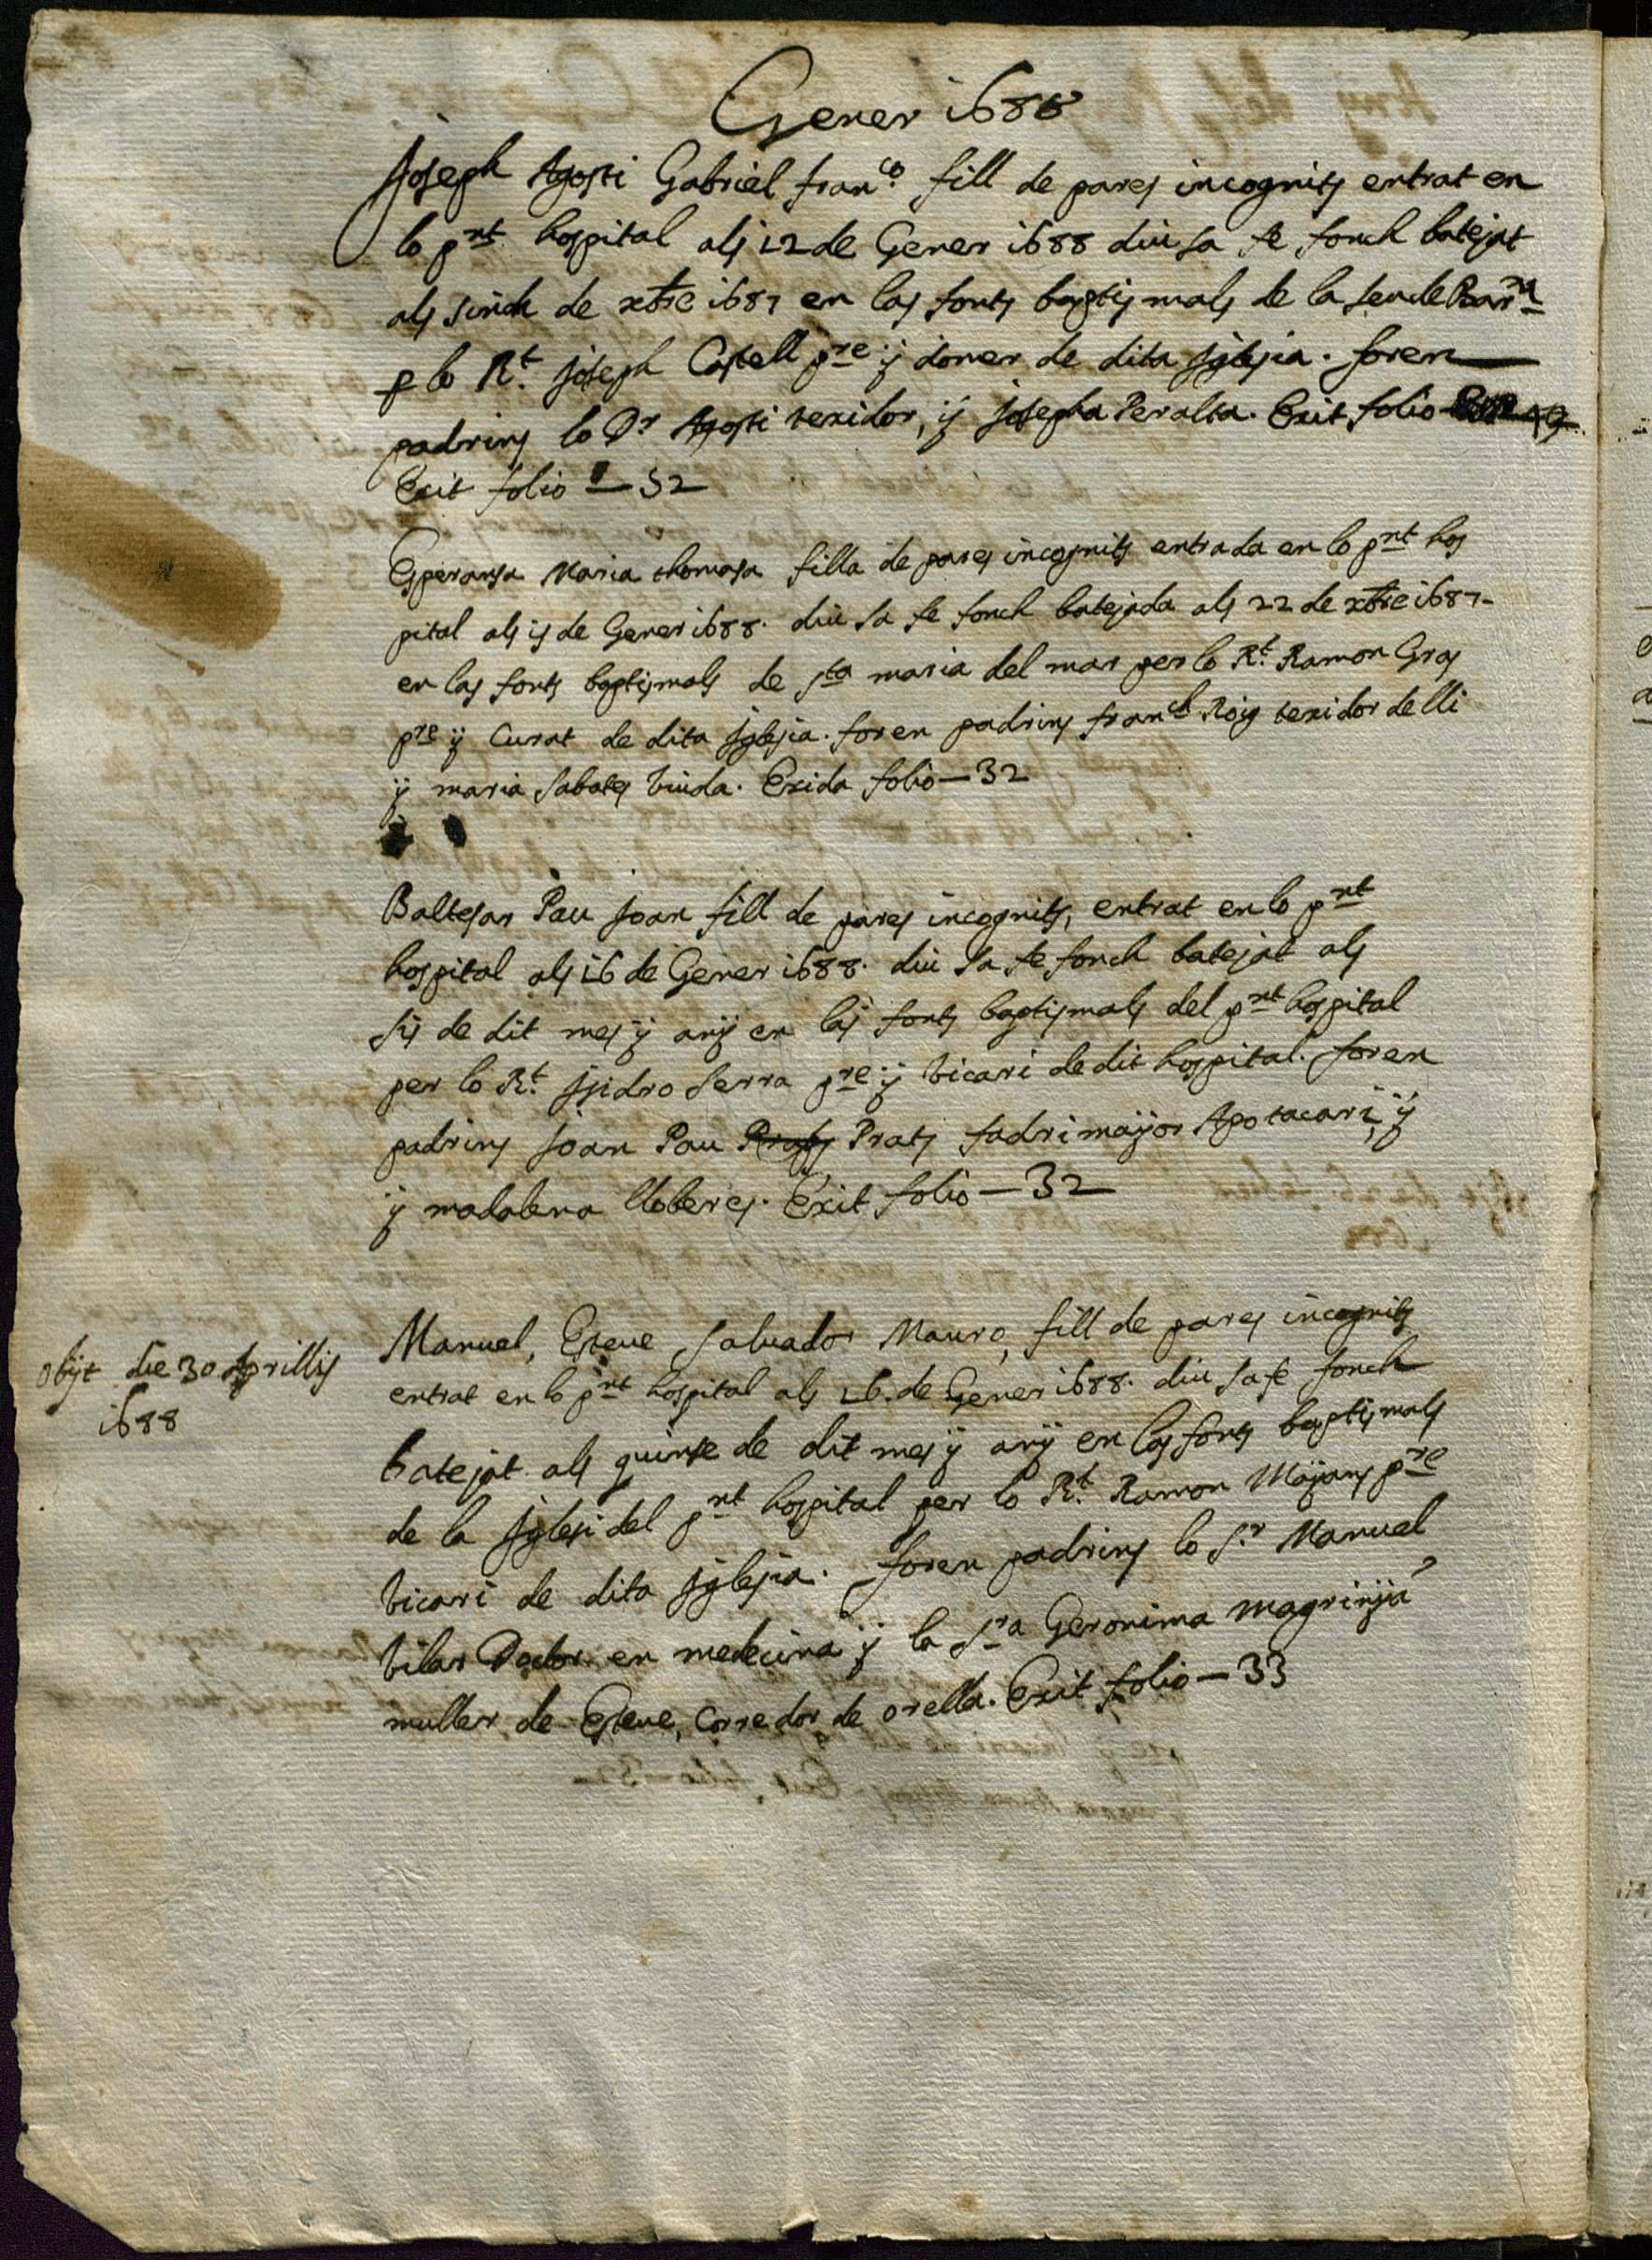 Gener 1688
Joseph Agosti Gabriel franco. fill de pares incognits entrat en
lo pnt hospital als 12 de Gener 1688 diu sa fe fonch batejat
als sinch de xbre 1687 en las fonts baptismals de la Seu de Barna
p lo Rt. Joseph Castell pre y domer de dita Iglesia. foren
padrins lo Dr Agosti texidor, y Josepha Peralta. Exit folio
Exit folio — 32
Esperansa Maria thomasa filla de pares incognits entrada en lo pnt hos
pital als 15 de Gener 1688. diu sa fe fonch batejada als 22 de xbre 1687-
en las fonts baptismals de sta maria del mar per lo Rt. Ramon Gras
pre y Curat de dita Iglesia. foren padrins franch Roig texidor de lli
y maria Sabates viuda. Exida folio — 32
Baltesar Pau Joan fill de pares incognits, entrat en lo pnt
hospital als 16 de Gener 1688. diu sa fe fonch batejat als
sis de dit mes y any en las fonts baptismals del pnt hospital
per lo Rt. Isidro Serra pre y vicari de dit hospital. foren
padrins Joan Pau Prats Prats fadri major Apotacari, y
y madalena lloberes. Exit folio — 32
Manuel, Esteve Salvador Mauro, fill de pares incognits
entrat en lo pnt hospital als 16. de Gener 1688. diu sa fe fonch
batejat als quinse de dit mes y any en las fonts baptismals
de la Iglesi del pnt hospital per lo Rt. Ramon Mayans pre
vicari de dita Iglesia. foren padrins lo Sr. Manuel
vilar Doctor en medecina y la Sra Geronima magrinya
muller de Esteve, Corredor de orella. Exit folio — 33
obijt die 30 Aprillis
1688